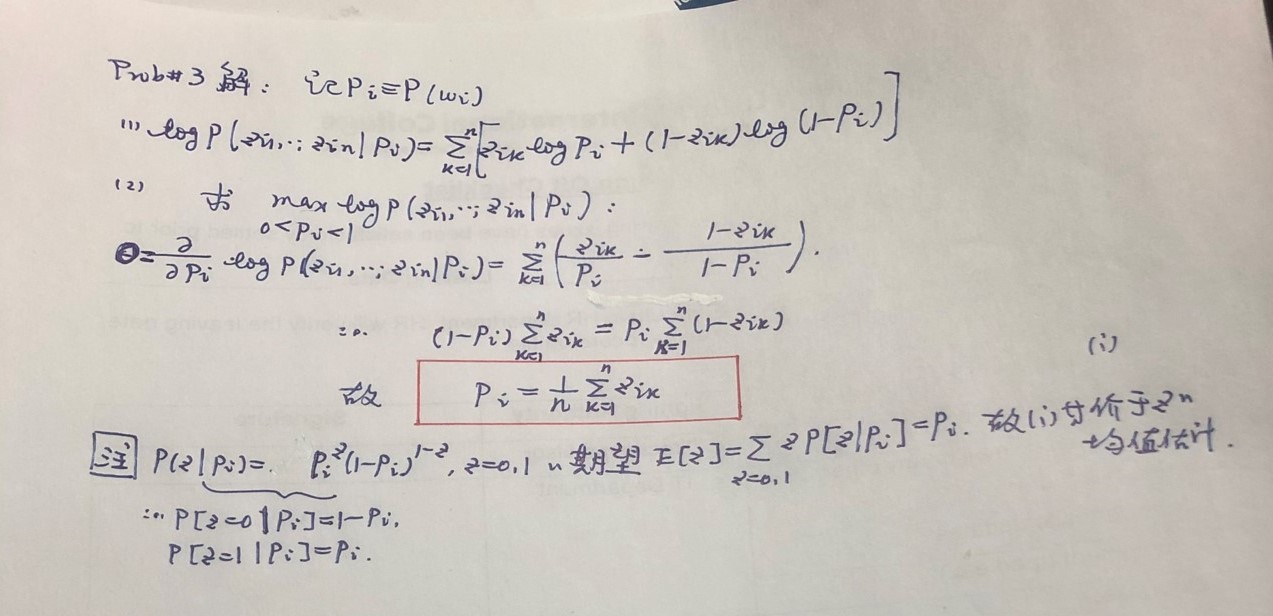 Prob#3 解: 记 Pi≡P(wi)
(1) log P(zi1,…,zin|Pi)=∑_{k=1}^{n}[zik log Pi+(1-zik)log(1-Pi)]
(2) 求 max_{0<Pi<1} log P(zi1,…,zin|Pi):
0=∂/∂Pi log P(zi1,…,zin|Pi)=∑_{k=1}^{n}(zik/Pi - (1-zik)/(1-Pi)).
∴ (1-Pi)∑_{k=1}^{n}zik=Pi∑_{k=1}^{n}(1-zik)
故 Pi=1/n ∑_{k=1}^{n}zik (i)
注 P(z|Pi)=Pi^z(1-Pi)^{1-z}, z=0,1 的 期望 E[z]=∑_{z=0,1} z P[z|Pi]=Pi. 故(i)等价于z的
均值估计.
∴ P[z=0|Pi]=1-Pi,
P[z=1|Pi]=Pi.